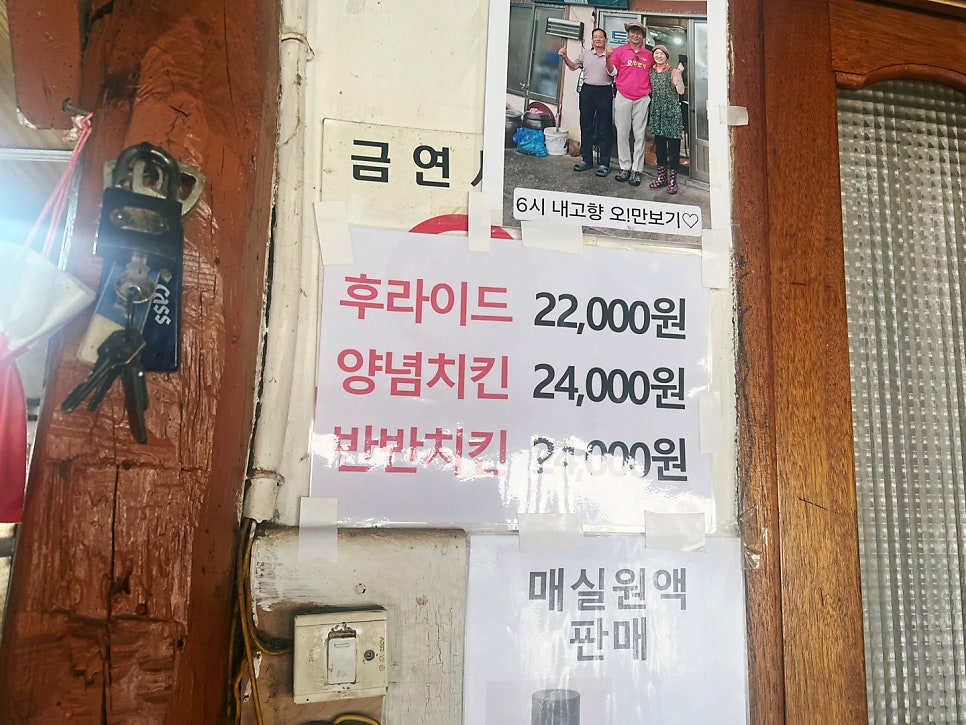 금연
6시 내고향 오!만보기♡
후라이드 22,000원
양념치킨 24,000원
반반치킨 24,000원
cass
매실원액
판매